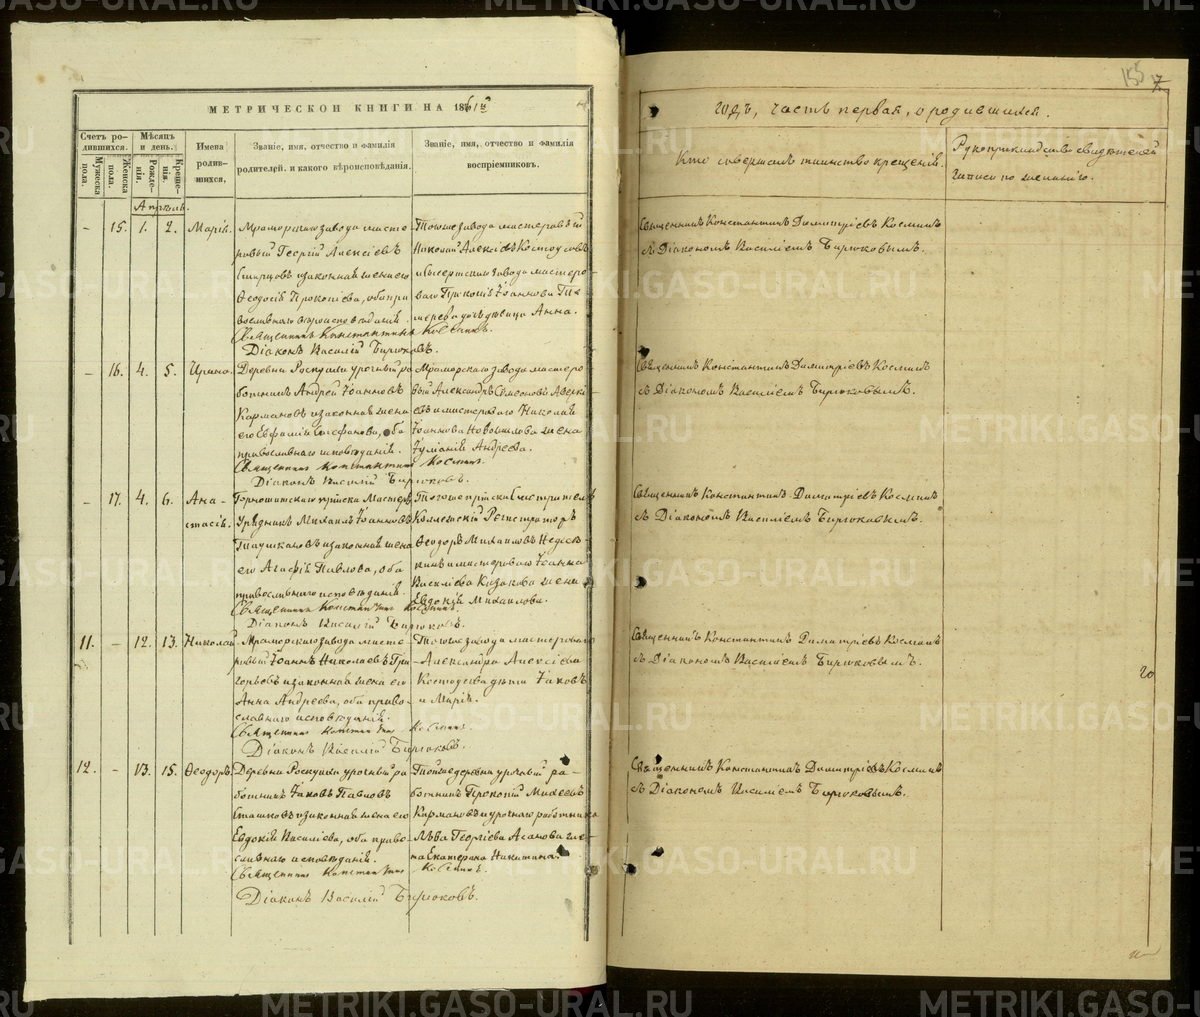 МЕТРИЧЕСКОЙ КНИГИ НА 1861й
Счетъ родившихся.
Мужеска пола.
Женска пола.
Мѣсяцъ и день.
Рожденія.
Крещенія.
Имена родившихся.
Званіе, имя, отчество и фамилія родителей, и какого вѣроисповѣданія.
Званіе, имя, отчество и фамилія воспріемниковъ.
Апрѣль.
– 15. 1. 2. Марія.
Мраморскаго завода масте-
ровый Георгій Алексѣевъ
и законная жена его
Ѳеодосія Прокопіева, оба пра-
вославнаго вѣроисповѣданія.
Священникъ Константинъ Косминъ.
Діаконъ Василій Бирюковъ.
Тогоже завода мастеровый
Николай Алексѣевъ Костоусовъ
и Сысертскаго завода мастеро-
ваго Прокопія Іоаннова
дѣвица Анна.
– 16. 4. 5. Ирина.
Деревни Роскуихи урочный ра-
ботникъ Андрей Іоанновъ
Кармановъ и законная жена
его Евфимія Стефанова, оба
православнаго исповѣданія.
Священникъ Константинъ Косминъ.
Діаконъ Василій Бирюковъ.
Мраморскаго завода мастеро-
вый Александръ Симеоновъ
и мастероваго Николая
Іоаннова Новошилова жена
Іуліанія Андреева.
– 17. 4. 6. Ана-
стасія.
Горнощитскаго пріиска Мастеръ
Урядникъ Михаилъ Іоанновъ
и законная жена
его Агафія Павлова, оба
православнаго исповѣданія.
Священникъ Константинъ Косминъ.
Діаконъ Василій Бирюковъ.
Тогоже пріиска Смотритель
Коллежскій Регистраторъ
Ѳеодоръ Михаиловъ
и мастероваго Іоанна
Василіева Казакова жена
Евдокія Михаилова.
11. – 12. 13. Николай.
Мраморскаго завода масте-
ровый Іоаннъ Николаевъ Гри-
горьевъ и законная жена его
Анна Андреева, оба право-
славнаго исповѣданія.
Священникъ Константинъ Косминъ.
Діаконъ Василій Бирюковъ.
Тогоже завода мастероваго
Александра Алексѣева
Костоусова дѣти Іаковъ
и Марія.
12. – 13. 15. Ѳеодоръ.
Деревни Роскуихи урочный ра-
ботникъ Іаковъ Павловъ
Сташковъ и законная жена его
Евдокія Василіева, оба право-
славнаго исповѣданія.
Священникъ Константинъ Косминъ.
Діаконъ Василій Бирюковъ.
Тойже деревни урочный ра-
ботникъ Прокопій Михеевъ
Кармановъ и урочнаго работника
Льва Георгіева Асанова же-
на Екатерина Никитина.
155
7
годъ, часть первая, о родившихся.
Кто совершалъ таинство крещенія.
Рукоприкладство свидѣтелей
записи по желанію.
Священникъ Константинъ Димитріевъ Косминъ
съ Діакономъ Василіемъ Бирюковымъ.
Священникъ Константинъ Димитріевъ Косминъ
съ Діакономъ Василіемъ Бирюковымъ.
Священникъ Константинъ Димитріевъ Косминъ
съ Діакономъ Василіемъ Бирюковымъ.
Священникъ Константинъ Димитріевъ Косминъ
съ Діакономъ Василіемъ Бирюковымъ.
20
Священникъ Константинъ Димитріевъ Косминъ
съ Діакономъ Василіемъ Бирюковымъ.
METRIKI.GASO-URAL.RU